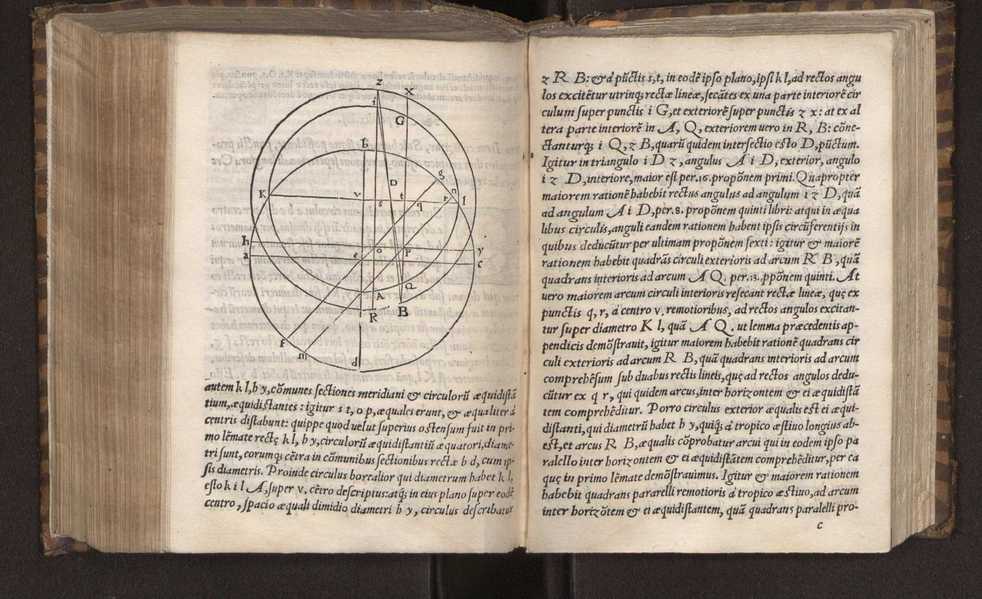 z
X
i
G
b
K
D
g
n
v
s
t
q
r
l
h
y
a
e
o
P
c
Q
A
R
B
f
m
d
autem k l, h y, cõmunes sectiones meridiani & circulorũ æquidistã
tium, æquidistantes: igitur s t, o p, æquales erunt, & æqualiter à
centris distabunt: quippe quod velut superius ostensum fuit in pri
mo lẽmate rectę k l, h y, circulorũ æquidistantiũ æquatori, diame
tri sunt, eorumq; cẽtra in cõmunibus sectionibus rectæ b d, cum ip-
sis diametris. Proinde circulus borealior qui diametrum habet k l,
esto k i l A, super v. cẽtro descriptus: atq; in eius plano super eodẽ
centro, spacio æquali dimidio diametri h y, circulus describatur
z R B: & à pũctis s, t, in eodẽ ipso plano, ipsi k l, ad rectos angu
los excitẽtur utrinq; rectæ lineæ, secãtes ex una parte interiorẽ cir
culum super punctis i G, et exteriorẽ super punctis z x: at ex al
tera parte interiorẽ in A, Q, exteriorem uero in R, B: cõne-
ctanturq; i Q, z B, quarũ quidem intersectio esto D, pũctum.
Igitur in triangulo i D z, angulus A i D, exterior, angulo
i z D, interiore, maior est per .16. proponẽm primi. Quapropter
maiorem rationẽ habebit rectus angulus ad angulum i z D, quã
ad angulum A i D, per .8. proponẽm quinti libri: atqui in æqua
libus circulis, anguli eandem rationem habent ipsis circũferentijs in
quibus deducũtur per ultimam proponẽm sexti: igitur & maiorẽ
rationem habebit quadrãs circuli exterioris ad arcum R B, quã
quadrans interioris ad arcum A Q. per .13. pponẽm quinti. At
uero maiorem arcum circuli interioris resecant rectæ lineæ, quę ex
punctis q, r, à centro v. remotioribus, ad rectos angulos excitan-
tur super diametro K l, quã A Q. ut lemma præcedentis ap-
pendicis demõstrauit, igitur maiorem habebit rationẽ quadrans cir
culi exterioris ad arcum R B, quã quadrans interioris ad arcum
comprehẽsum sub duabus rectis lineis, quę ad rectos angulos dedu-
cũtur ex q r, qui quidem arcus, inter horizontem & ei æquidistã
tem comprehẽditur. Porro circulus exterior æqualis est ei æqui-
distanti, qui diametrũ habet h y, quiq; à tropico æstiuo longius ab-
est, et arcus R B, æqualis cõprobatur arcui qui in eodem ipso pa
ralello inter horizontem & ei æquidistãtem comprehẽditur, per ea
quę in primo lẽmate demõstrauimus. Igitur & maiorem rationem
habebit quadrans pararelli remotioris à tropico æstiuo, ad arcum
inter horizõtem & ei æquidistantem, quã quadrans paralelli pro-
c